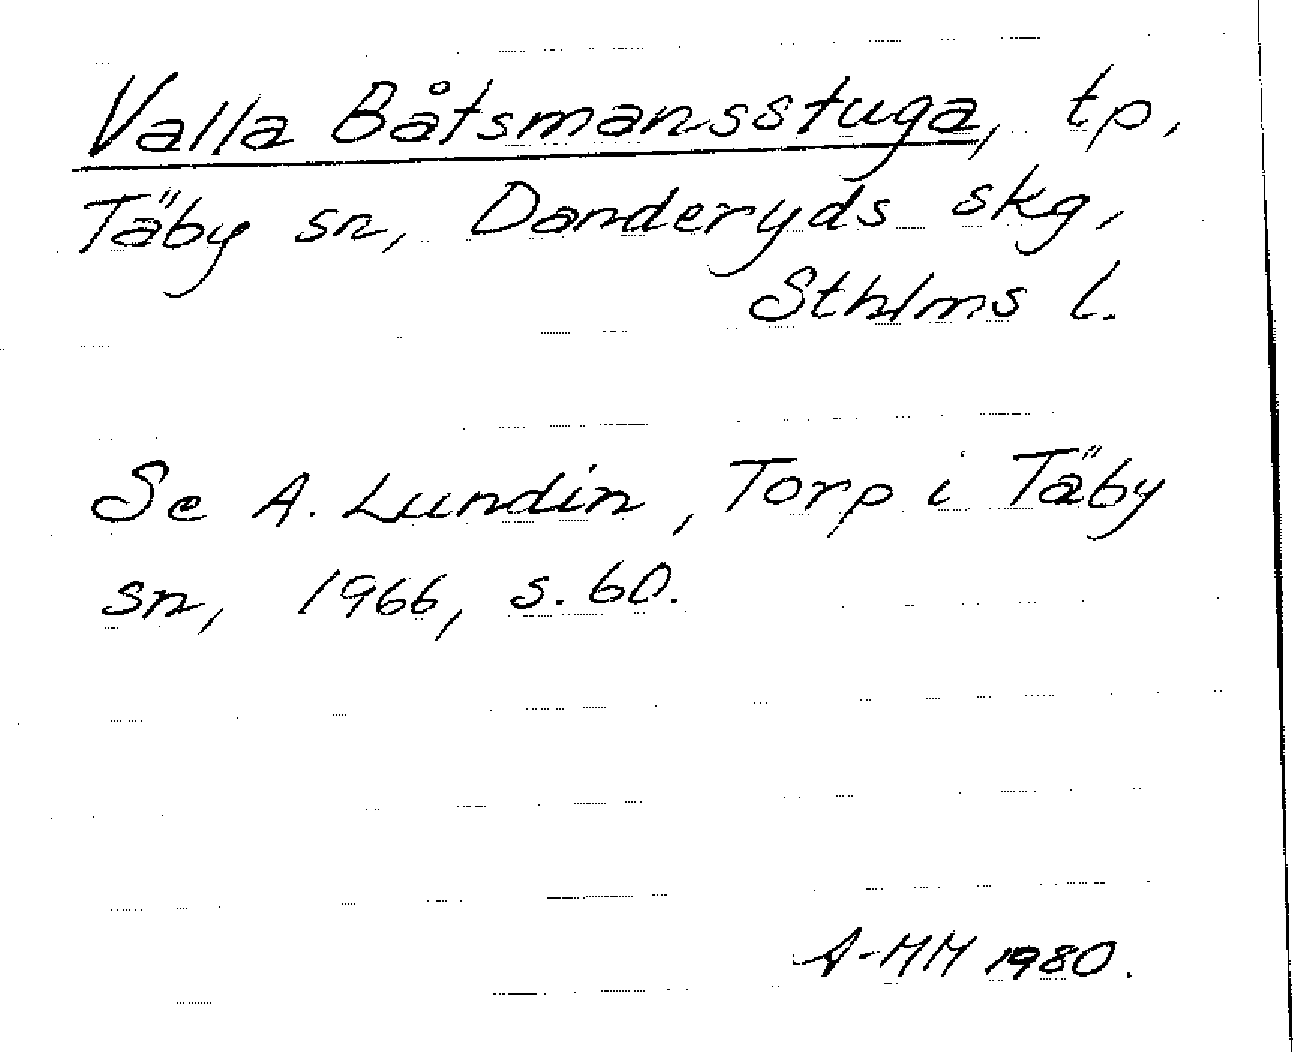 Valla Båtsmansstuga, tp,
Täby sn, Danderyds skg,
Sthlms l.
Se A. Lundin, Torp i Täby
sn, 1966, s. 60.
A-MM 1980.